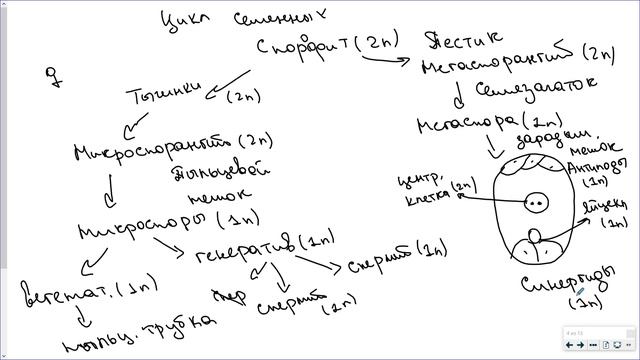 Цикл семенных
Спорофит (2n)
Пестик
Мегаспорангий (2n)
Семезачаток
Мегаспора (1n)
зародыш.
мешок
Антиподы
(1n)
центр.
клетка (2n)
яйцекл
(1n)
Синергиды
(1n)
Тычинки
(2n)
Микроспорангий (2n)
Пыльцевой
мешок
микроспоры (1n)
генератив (1n)
спермий (1n)
спер
спермий
(1n)
вегетат. (1n)
пыльц. трубка
4 из 13